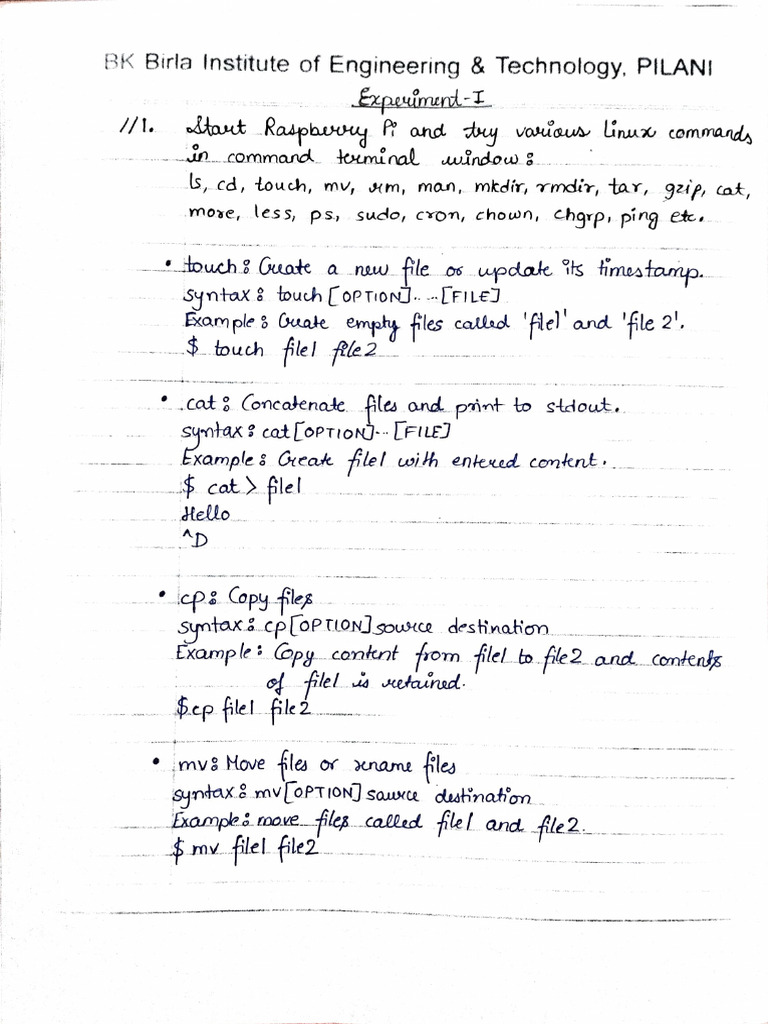 BK Birla Institute of Engineering & Technology, PILANI
Experiment-I
//1. Start Raspberry Pi and try various Linux commands
in command terminal window:
ls, cd, touch, mv, rm, man, mkdir, rmdir, tar, gzip, cat,
more, less, ps, sudo, cron, chown, chgrp, ping etc.
• touch: Create a new file or update its timestamp.
syntax: touch [OPTION]....[FILE]
Example: Create empty files called 'file1' and 'file 2'.
$ touch file1 file2
• cat: Concatenate files and print to stdout.
syntax: cat[OPTION]...[FILE]
Example: Create file1 with entered content.
$ cat > file1
Hello
^D
• cp: Copy files
syntax: cp[OPTION]source destination
Example: Copy content from file1 to file2 and contents
of file1 is retained.
$ cp file1 file2
• mv: Move files or rename files
syntax: mv[OPTION]source destination
Example: move files called file1 and file2.
$ mv file1 file2